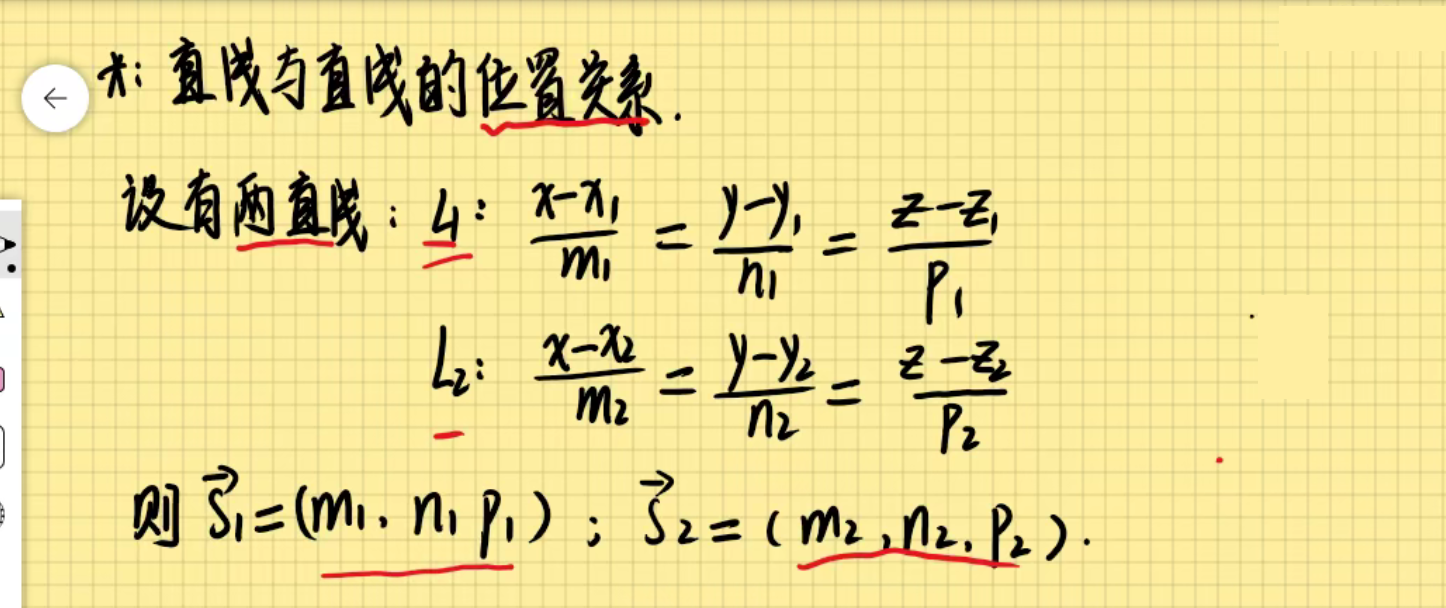 大: 直线与直线的位置关系.
设有两直线: L1: (x-x1)/m1 = (y-y1)/n1 = (z-z1)/p1
L2: (x-x2)/m2 = (y-y2)/n2 = (z-z2)/p2
则 S⃗1=(m1, n1 p1); S⃗2=(m2, n2, p2).